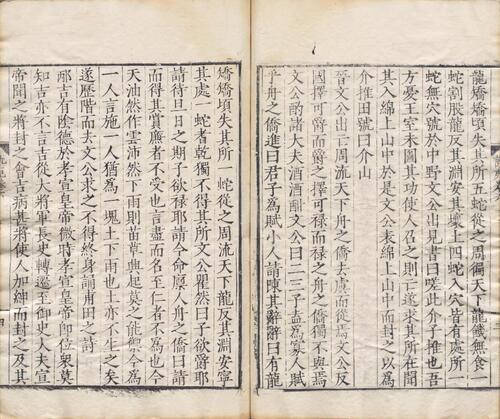 龍矯矯頃失其所五蛇從之周流天下龍饑無食一
蛇割股龍反其淵安其壤土四蛇入穴皆有處所一
蛇無穴號於中野文公出見書曰嗟此介子推也吾
方憂王室未圖其功使人召之則亡遂求其所在聞
其入綿上山中於是文公表綿上山中而封之以爲
介推田號曰介山
晉文公出亡周流天下舟之僑去虞而從焉文公反
國擇可爵而爵之擇可祿而祿之舟之僑獨不與焉
文公酌諸大夫酒酒酣文公曰二三子盍爲寡人賦
乎舟之僑進曰君子爲賦小人請陳其辭辭曰有龍
矯矯頃失其所一蛇從之周流天下龍反其淵安寧
其處一蛇耆乾獨不得其所文公瞿然曰子欲爵耶
請待旦日之期子欲祿耶請今命廩人舟之僑曰請
而得其賞廉者不受也言盡而名至仁者不爲也今
天油然作雲沛然下雨則苗草興起莫之能禦今爲
一人言施一人猶爲一塊土下雨也土亦不生之矣
遂歷階而去文公求之不得終身誦甫田之詩
邴吉有陰德於孝宣皇帝微時孝宣皇帝即位衆莫
知吉亦不言吉從大將軍長史轉遷至御史大夫宣
帝聞之將封之會吉病甚將使人加紳而封之及其